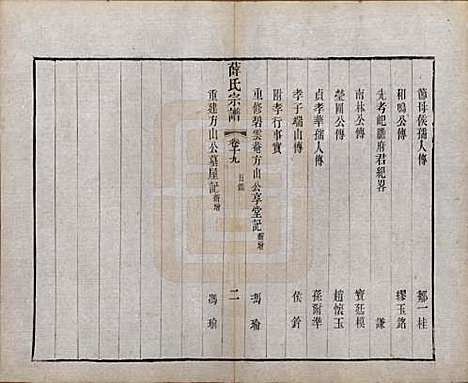 節母侯孺人傳 鄒一桂
和鳴公傳 繆玉銘
先考耜纖府君紀畧 謙
南林公傳 竇延模
瑩圃公傳 趙懷玉
貞孝華孺人傳 孫爾準
孝子瑞山傳 侯鈐
附孝行事實
重修碧雲菴方山公享堂記 新增 馮瑜
薛氏宗譜 卷十九 目錄 二
重建方山公墓屋記 新增 馮瑜